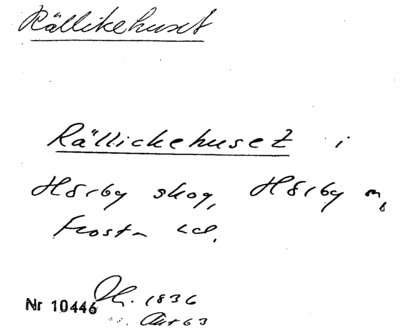 Rällikehuset
Rällickehuset i
Hörby skog, Hörby s,
Frosta hd.
Nr 10446 1836
63